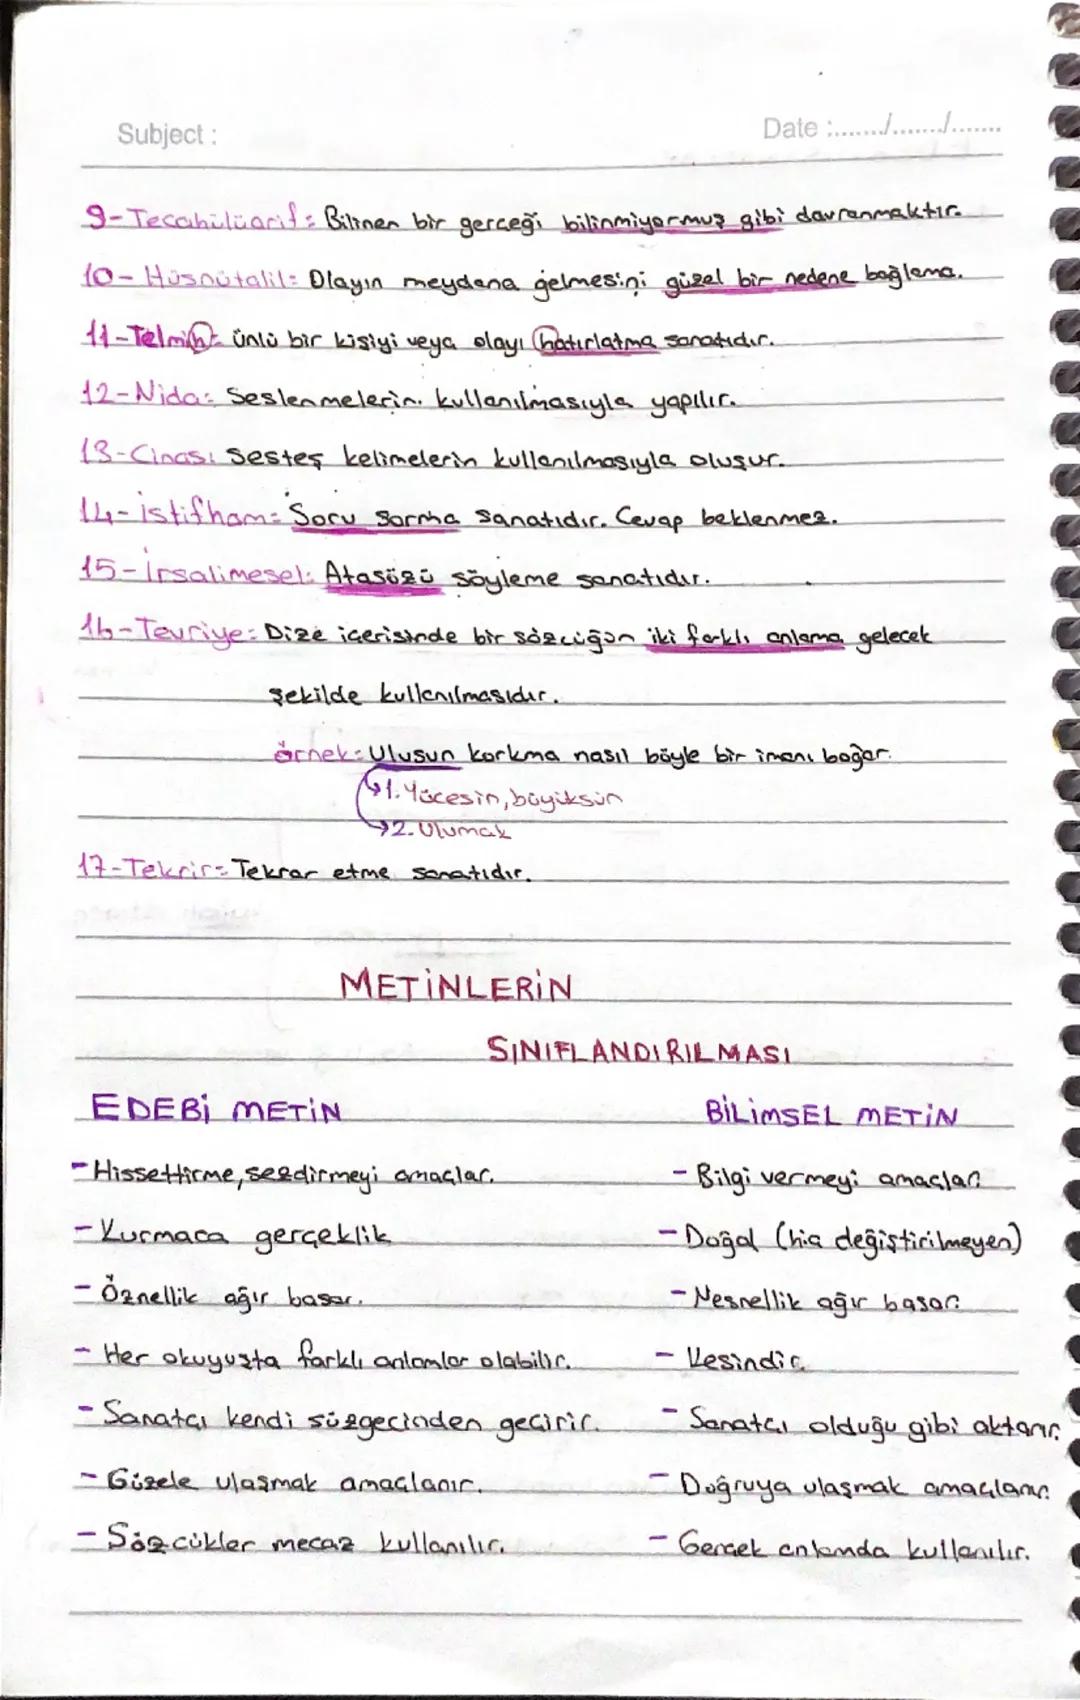 Subject :
Date :......./......./.......
9-Tecahülüarif: Bilinen bir gerçeği bilinmiyormuş gibi davranmaktır.
10- Hüsnütalil: Olayın meydana gelmesini güzel bir nedene bağlama.
11-Telmih: ünlü bir kişiyi veya olayı hatırlatma sanatıdır.
12-Nida: Seslenmelerin kullanılmasıyla yapılır.
13-Cinas: Sesteş kelimelerin kullanılmasıyla oluşur.
14-istifham: Soru sorma sanatıdır. Cevap beklenmez.
15-irsalimesel: Atasözü söyleme sanatıdır.
16-Tevriye: Dize içerisinde bir sözcüğün iki farklı anlama gelecek
şekilde kullanılmasıdır.
örnek: Ulusun korkma nasıl böyle bir imanı boğar.
1. Yücesin, büyüksün
2. Ulumak
17-Tekrir: Tekrar etme sanatıdır.
METİNLERİN
SINIFLANDIRILMASI
EDEBİ METİN
BİLİMSEL METİN
- Hissettirme, sezdirmeyi amaçlar.
- Bilgi vermeyi amaçlar.
- Kurmaca gerçeklik
- Doğal (hiç değiştirilmeyen)
- Öznellik ağır basar.
- Nesnellik ağır basar.
- Her okuyuşta farklı anlamlar olabilir.
- Kesindir.
- Sanatçı kendi süzgecinden geçirir.
- Sanatçı olduğu gibi aktarır.
- Güzele ulaşmak amaçlanır.
- Doğruya ulaşmak amaçlanır.
- Sözcükler mecaz kullanılır.
- Gerçek anlamda kullanılır.